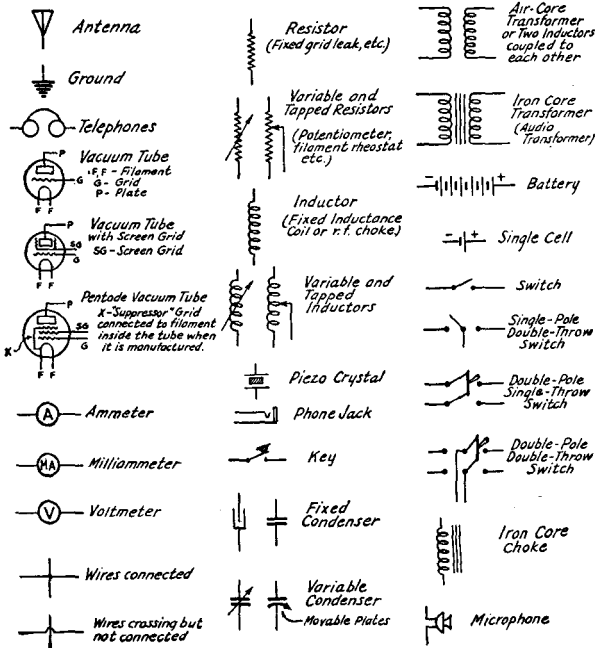 Antenna
Ground
Telephones
P
G
F F
Vacuum Tube
F,F - Filament
G - Grid
P - Plate
P
SG
G
F F
Vacuum Tube
with Screen Grid
SG - Screen Grid
P
SG
G
X
F F
Pentode Vacuum Tube
X-"Suppressor" Grid
connected to filament
inside the tube when
it is manufactured.
A
Ammeter
MA
Milliammeter
V
Voltmeter
Wires connected
Wires crossing but
not connected
Resistor
(Fixed grid leak, etc.)
Variable and
Tapped Resistors
(Potentiometer,
filament rheostat
etc.)
Inductor
(Fixed Inductance
Coil or r.f. choke.)
Variable and
Tapped
Inductors
Piezo Crystal
Phone Jack
Key
Fixed
Condenser
Variable
Condenser
Movable Plates
Air-Core
Transformer
or Two Inductors
coupled to
each other
Iron Core
Transformer
(Audio
Transformer)
- +
Battery
- +
Single Cell
Switch
Single-Pole
Double-Throw
Switch
Double-Pole
Single-Throw
Switch
Double-Pole
Double-Throw
Switch
Iron Core
Choke
Microphone